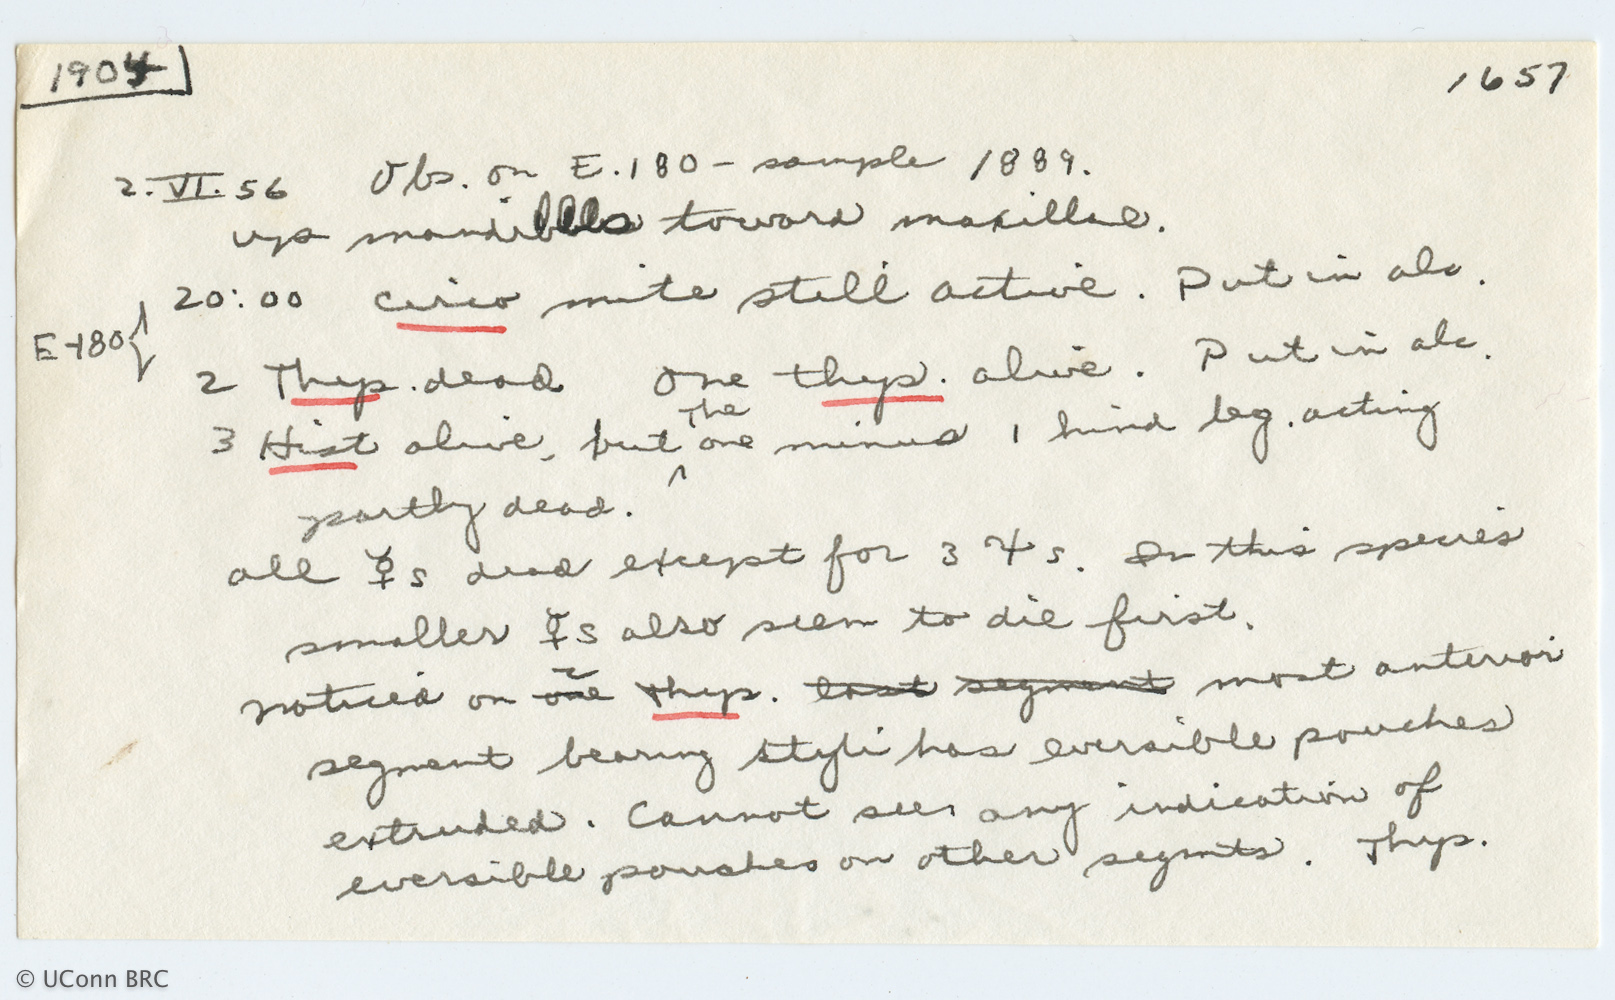 1904
1657
2.VI.56 Obs. on E.180 - sample 1889.
up mandibles toward maxillae.
20:00 circo mite still active. Put in alc.
E-180 {
2 Thyp. dead One thyp. alive. Put in alc.
3 Hist alive, but the one minus 1 hind leg. acting
partly dead.
all ☿s dead except for 3 ♃s. In this species
smaller ☿s also seem to die first.
noticed on one 2 thyp. last segment most anterior
segment bearing styli has eversible pouches
extruded. Cannot see any indication of
eversible pouches on other segmts. Thyp.
© UConn BRC